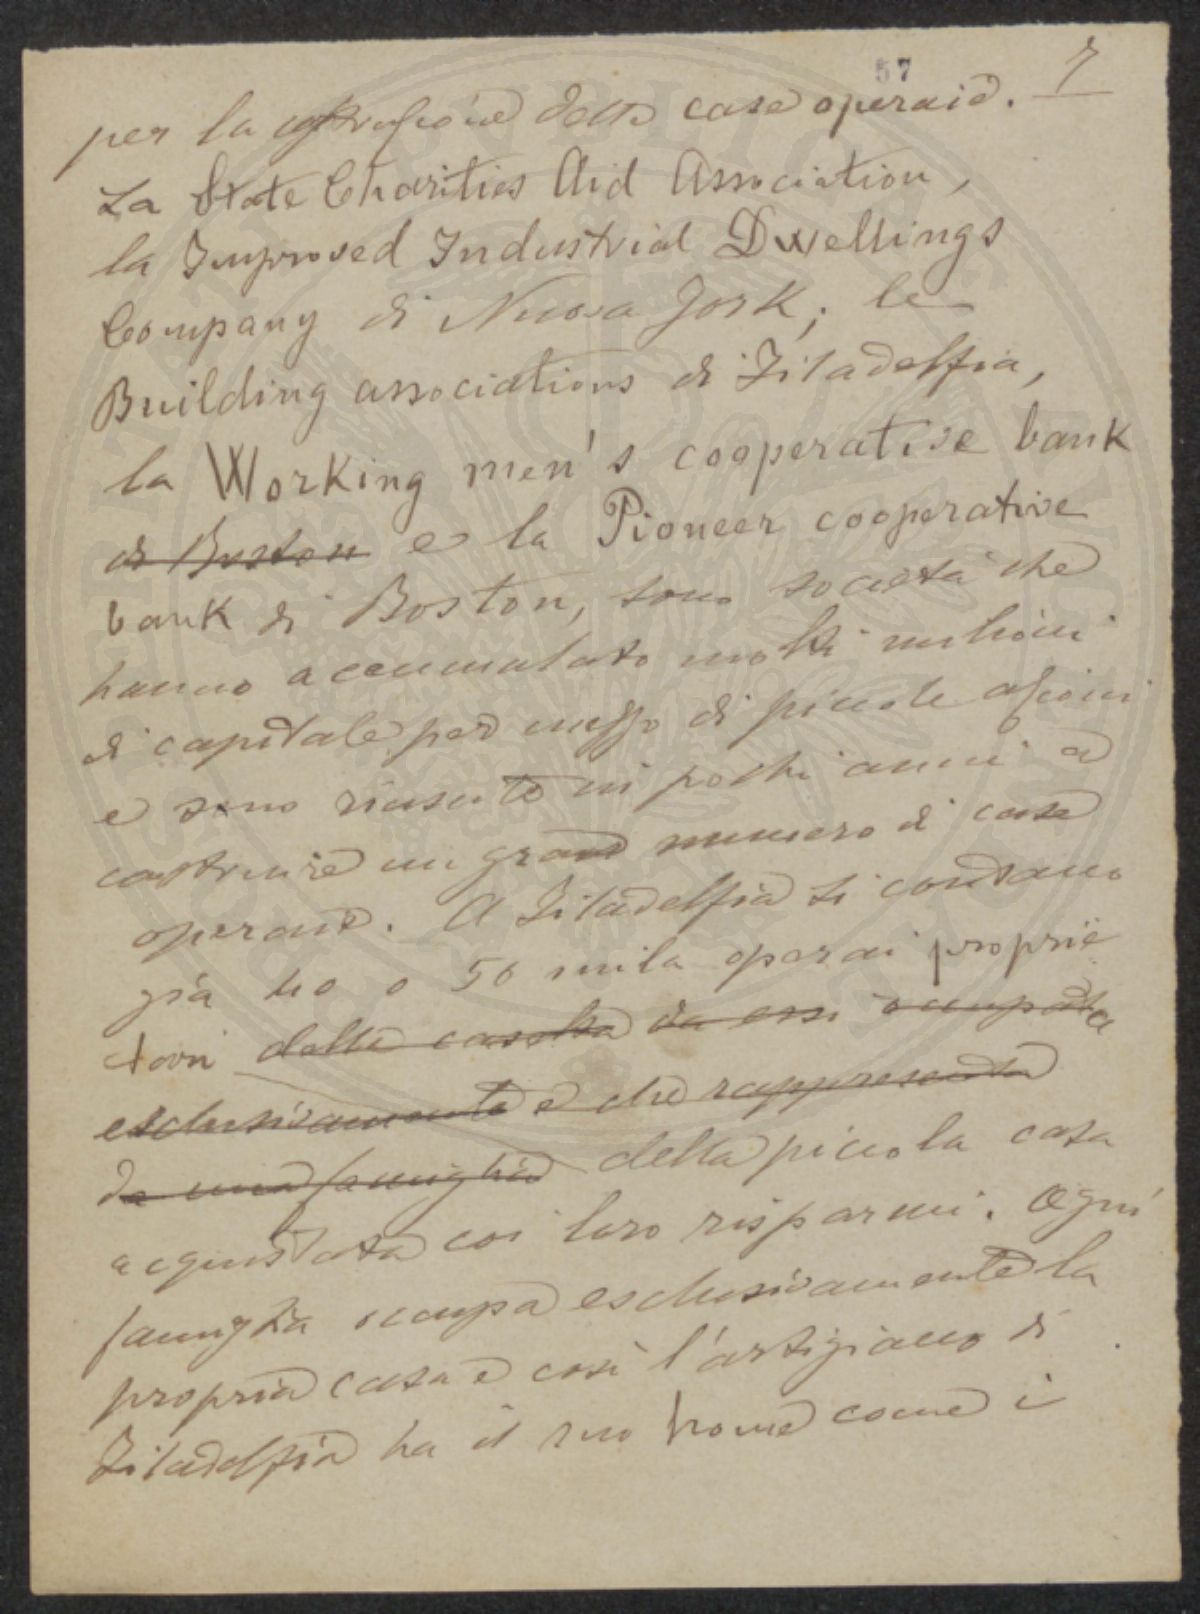 57
7
per la costruzione delle case operaie.
La State Charities Aid Association,
la Improved Industrial Dwellings
Company di Nuova Jork; le
Building associations di Filadelfia,
la Working men's cooperative bank
di Boston e la Pioneer cooperative
bank di Boston, sono società che
hanno accumulato molti milioni
di capitale per mezzo di piccole azioni
e sono riuscite in pochi anni a
costruire un grand numero di case
operaie. A Filadelfia si contano
già 40 o 50 mila operai proprie
tari delle casette da essi occupate
esclusivamente e che rappresenta
da una famiglia della piccola casa
acquistata coi loro risparmi. Ogni
famiglia occupa esclusivamente la
propria casa e così l'artigiano di
Filadelfia ha il suo home come i